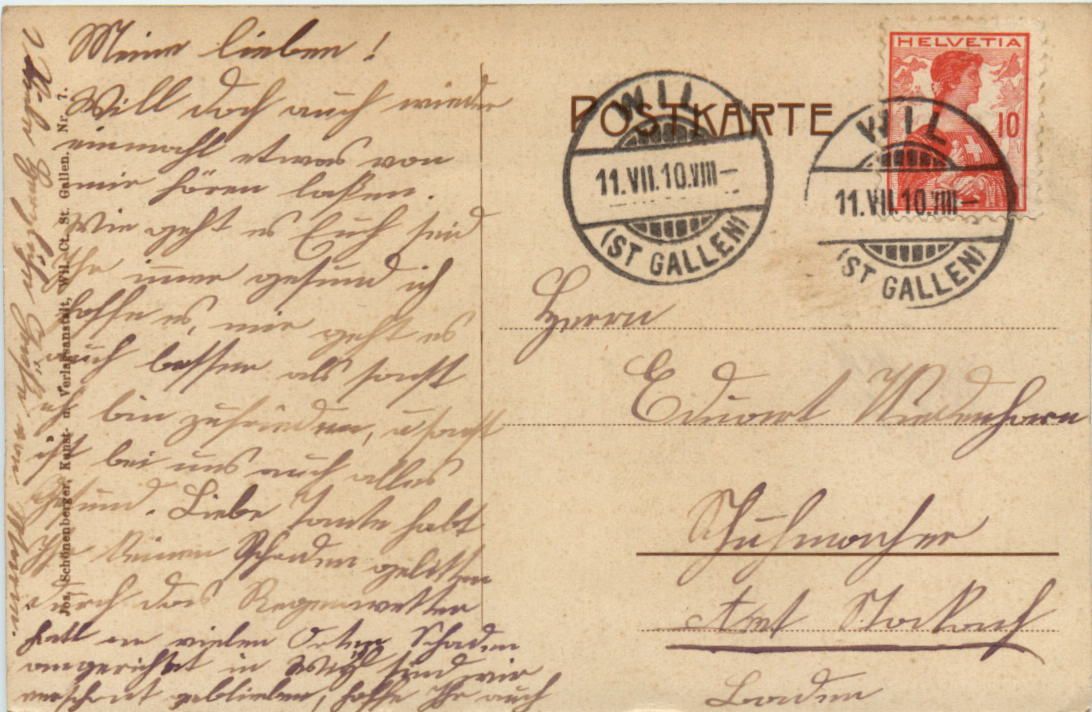 Meine lieben!
Will doch auch wieder
einmahl etwas von
mir hören laßen.
Wie geht es Euch seid
Ihr immer gesund ich
hoffe es, mir geht es
auch besser als sonst
ich bin zufrieden, u sonst
ist bei uns auch alles
gesund. Liebe Tante habt
Ihr keinen Schaden gelitten
durch das Regenwetter
hatt an vielen Orten Schaden
angerichtet in sind wir
verschont geblieben, hoffe Ihr auch
Viele herzliche Grüße von
Jos. Schönenberger, Kunst- u. Verlagsanstalt, Wil, Ct. St. Gallen. Nr. 7.
POSTKARTE
WIL
11.VII.10.VIII–
(ST GALLEN)
HELVETIA
10
WIL
11.VII.10.VIII–
(ST GALLEN)
Herrn
Eduart
Schuhmacher
Amt Stockach
Baden